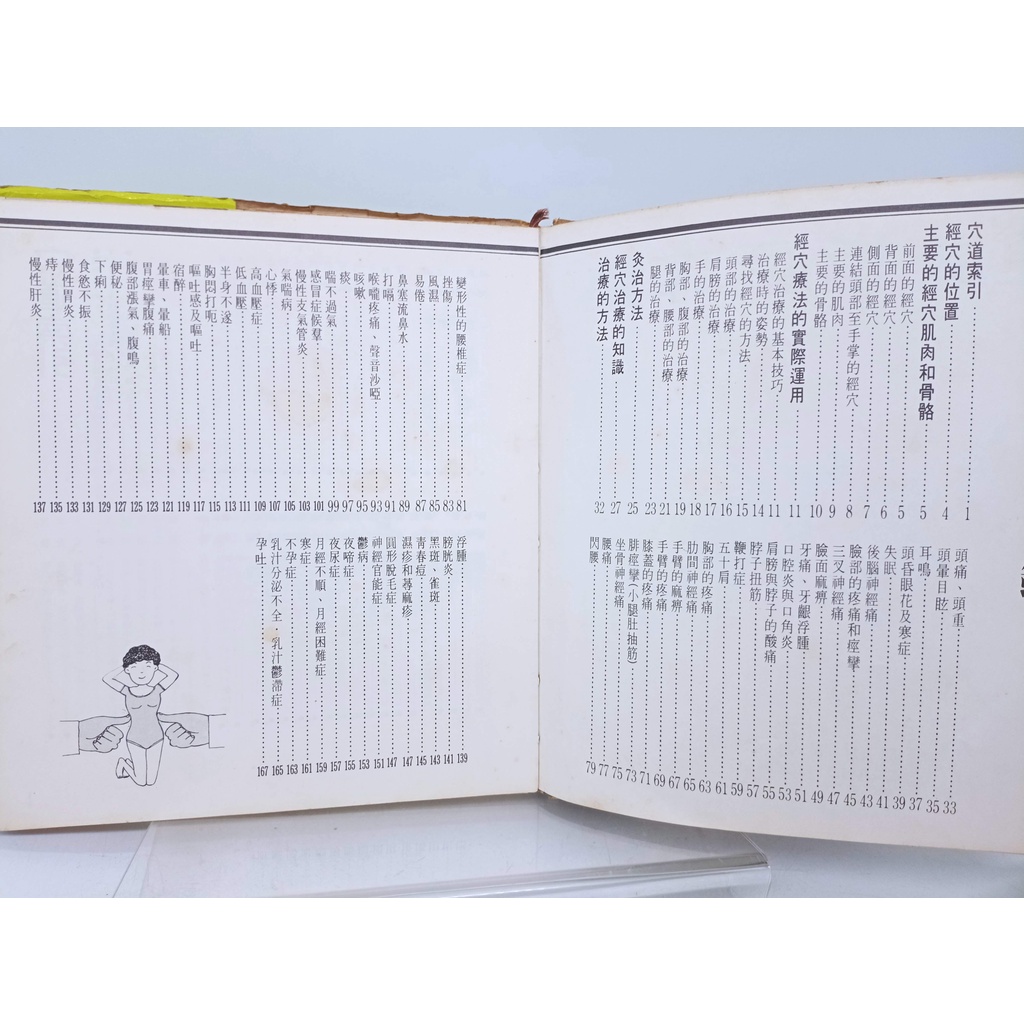 穴道索引……1
經穴的位置……4
主要的經穴肌肉和骨骼……5
前面的經穴……5
背面的經穴……6
側面的經穴……7
連結頭部至手掌的經穴……8
主要的肌肉……9
主要的骨骼……10
經穴療法的實際運用……11
經穴治療的基本技巧……11
治療時的姿勢……14
尋找經穴的方法……15
頭部的治療……16
肩膀的治療……17
手的治療……18
胸部、腹部的治療……19
背部、腰部的治療……21
腿的治療……23
灸治方法……25
經穴治療的知識……27
治療的方法……32
頭痛、頭重……33
頭暈目眩……35
耳鳴……37
頭昏眼花及寒症……39
失眠……41
後腦神經痛……43
臉部的疼痛和痙攣……45
三叉神經痛……47
臉面麻痹……49
牙痛、牙齦浮腫……51
口腔炎與口角炎……53
肩膀與脖子的酸痛……55
脖子扭筋……57
鞭打症……59
五十肩……61
胸部的疼痛……63
肋間神經痛……65
手臂的麻痹……67
手臂的疼痛……69
膝蓋的疼痛……71
腓痙攣(小腿肚抽筋)……73
坐骨神經痛……75
腰痛……77
閃腰……79
變形性的腰椎症……81
挫傷……83
風濕……85
易倦……87
鼻塞流鼻水……89
打嗝……91
喉嚨疼痛、聲音沙啞……93
咳嗽……95
痰……97
喘不過氣……99
感冒症候羣……101
慢性支氣管炎……103
氣喘病……105
心悸……107
高血壓症……109
低血壓……111
半身不遂……113
胸悶打呃……115
嘔吐感及嘔吐……117
宿醉……119
暈車、暈船……121
胃痙攣腹痛……123
腹部漲氣、腹鳴……125
便秘……127
下痢……129
食慾不振……131
慢性胃炎……133
痔……135
慢性肝炎……137
浮腫……139
膀胱炎……141
黑斑、雀斑……143
青春痘……145
濕疹和蕁麻疹……147
圓形脫毛症……147
神經官能症……151
鬱病……153
夜啼症……155
夜尿症……157
月經不順、月經困難症……159
寒症……161
不孕症……163
乳汁分泌不全．乳汁鬱滯症……165
孕吐……167